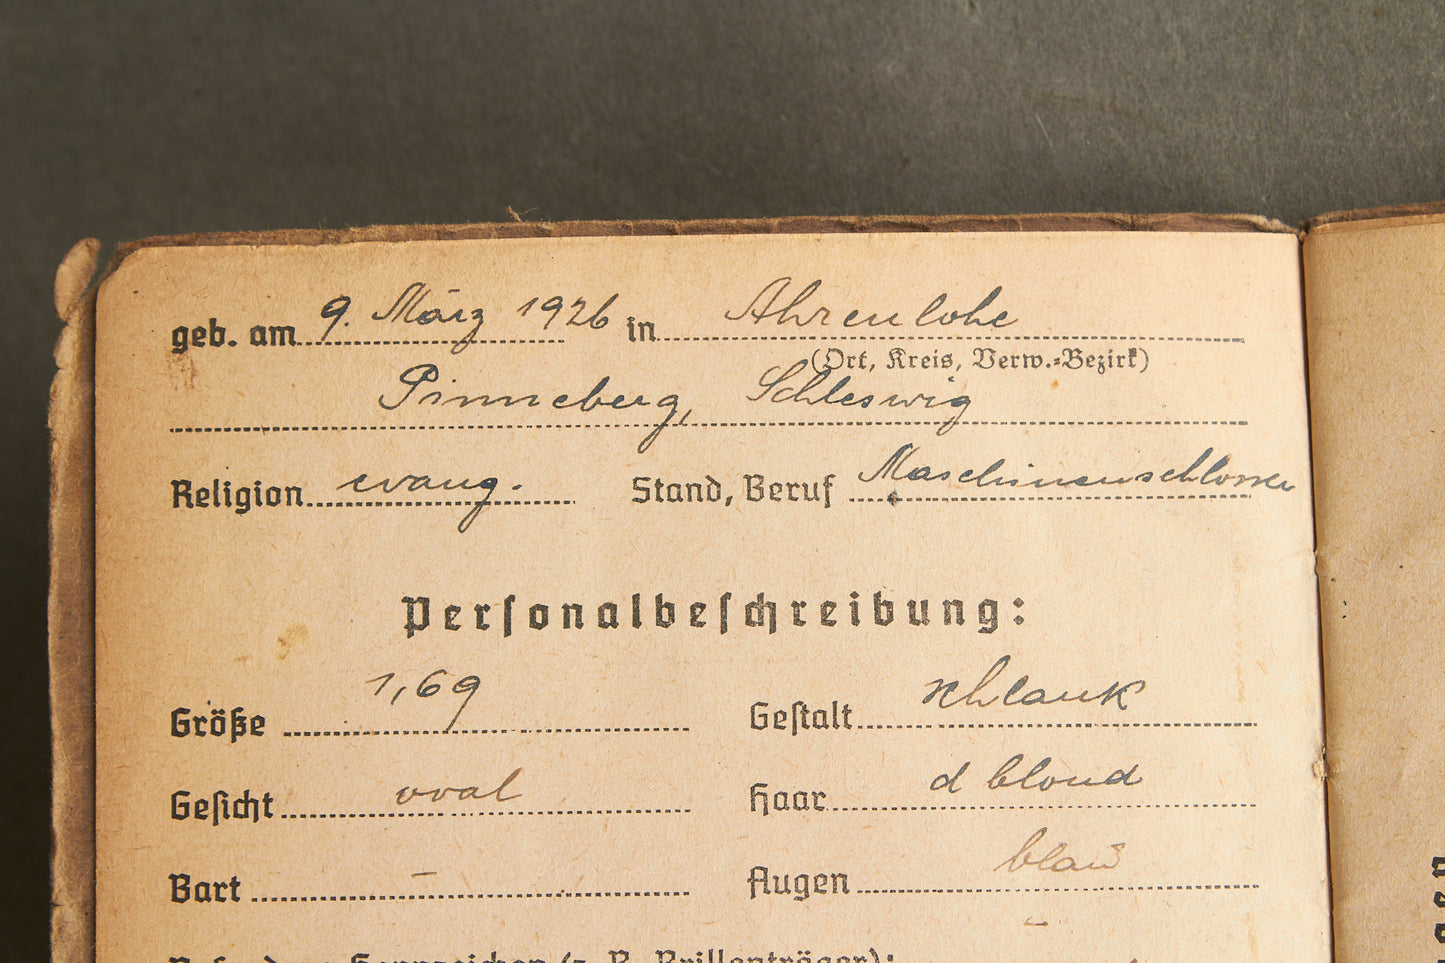 geb. am 9. März 1926 in Ahrenlohe
(Ort, Kreis, Verw.-Bezirk)
Pinneberg, Schleswig
Religion evang. Stand, Beruf Maschinenschlosser
Personalbeschreibung:
Größe 1,69 Gestalt schlank
Gesicht oval Haar d blond
Bart – Augen blau
(z. B. Brillenträger):